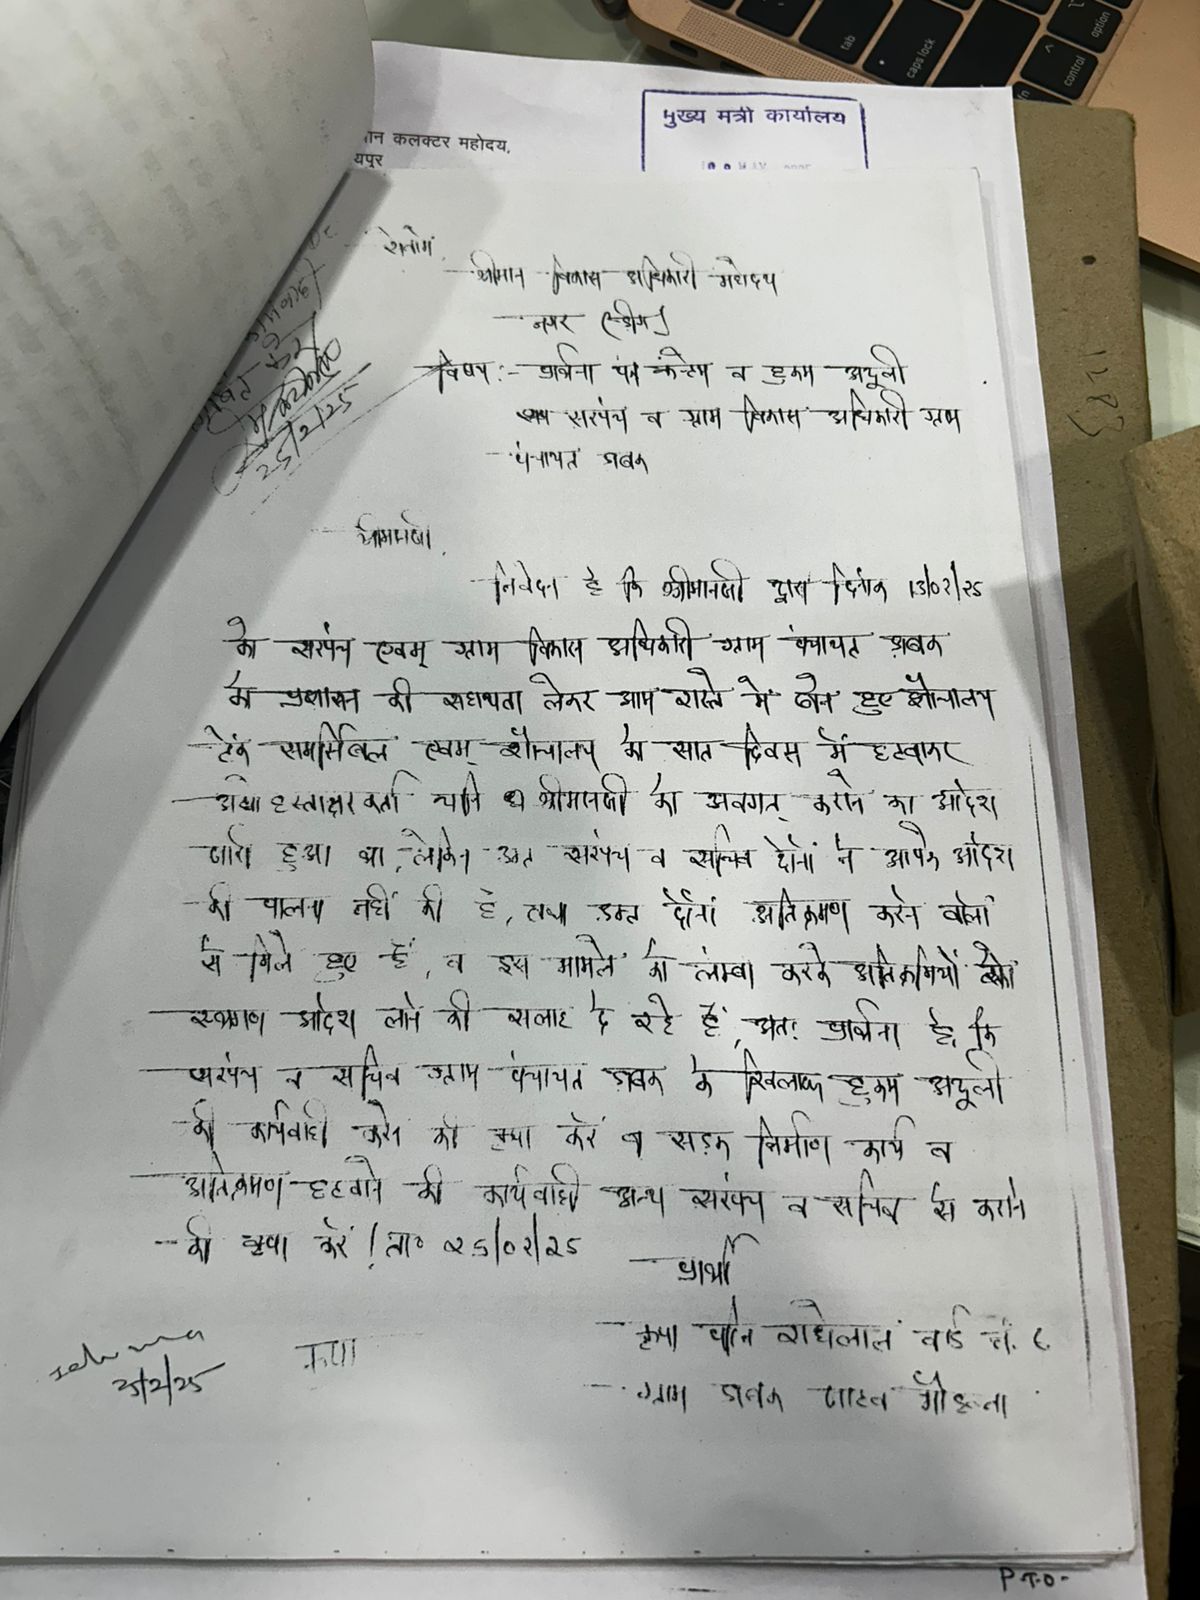 मुख्य मंत्री कार्यालय
मान कलक्टर महोदय,
यपुर
सेवामें,
श्रीमान विकास अधिकारी महोदय
नगर (डीग)
विषय:- प्रार्थना पत्र व हुकम अदूली
सरपंच व ग्राम विकास अधिकारी ग्राम
पंचायत
25/2/25
श्रीमानजी,
निवेदन है कि श्रीमानजी द्वारा दिनांक 13/02/25
को सरपंच एवम् ग्राम विकास अधिकारी ग्राम पंचायत
को प्रशासन की सहायता लेकर आम रास्ते में बने हुए शौचालय
टेंक समर्सिबल एवम् शौचालय को सात दिवस में हटवाकर
श्रीमानजी को अवगत कराने का आदेश
जारी हुआ था, लेकिन उक्त सरपंच व सचिव दोनों ने आपके आदेश
की पालना नहीं की है, तथा उक्त दोनों अतिक्रमण करने वालों
से मिले हुए हैं, व इस मामले को लम्बा करके अतिक्रमियों को
स्थगण आदेश लाने की सलाह दे रहे हैं, अतः प्रार्थना है कि
सरपंच व सचिव ग्राम पंचायत के खिलाफ हुकम अदूली
की कार्यवाही करने की कृपा करें व सड़क निर्माण कार्य व
अतिक्रमण हटवाने की कार्यवाही अन्य सरपंच व सचिव से कराने
की कृपा करें। ता० 25/02/25
प्रार्थी
राधेलाल वार्ड नं.
ग्राम जाटव मौहल्ला
25/2/25
P.T.O-
1283
tab
caps lock
option
control
fn